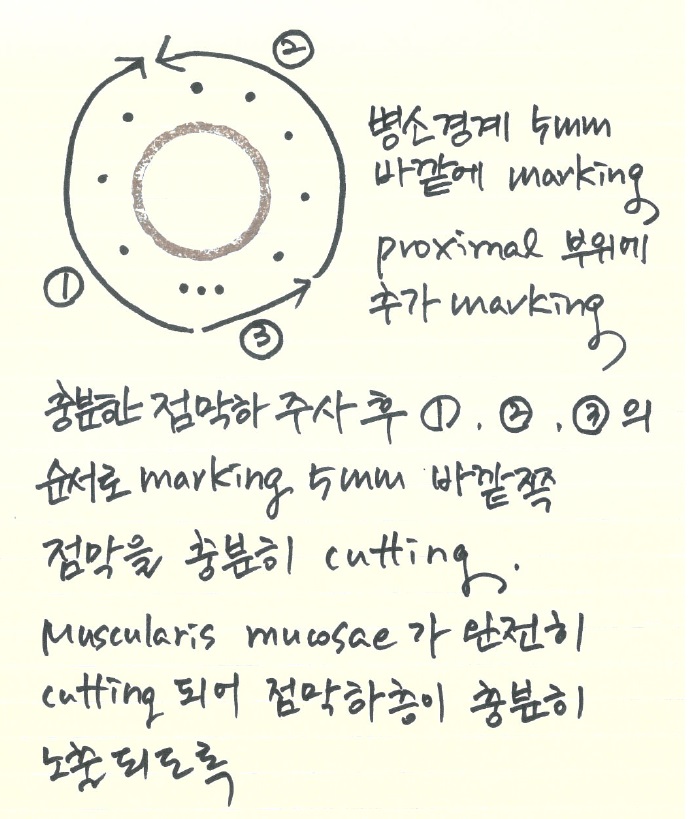 ②
병소경계 5mm
바깥에 marking
proximal 부위에
추가 marking
①
③
충분한 점막하 주사 후 ①, ②, ③의
순서로 marking 5mm 바깥쪽
점막을 충분히 cutting.
Muscularis mucosae가 완전히
cutting 되어 점막하층이 충분히
노출되도록